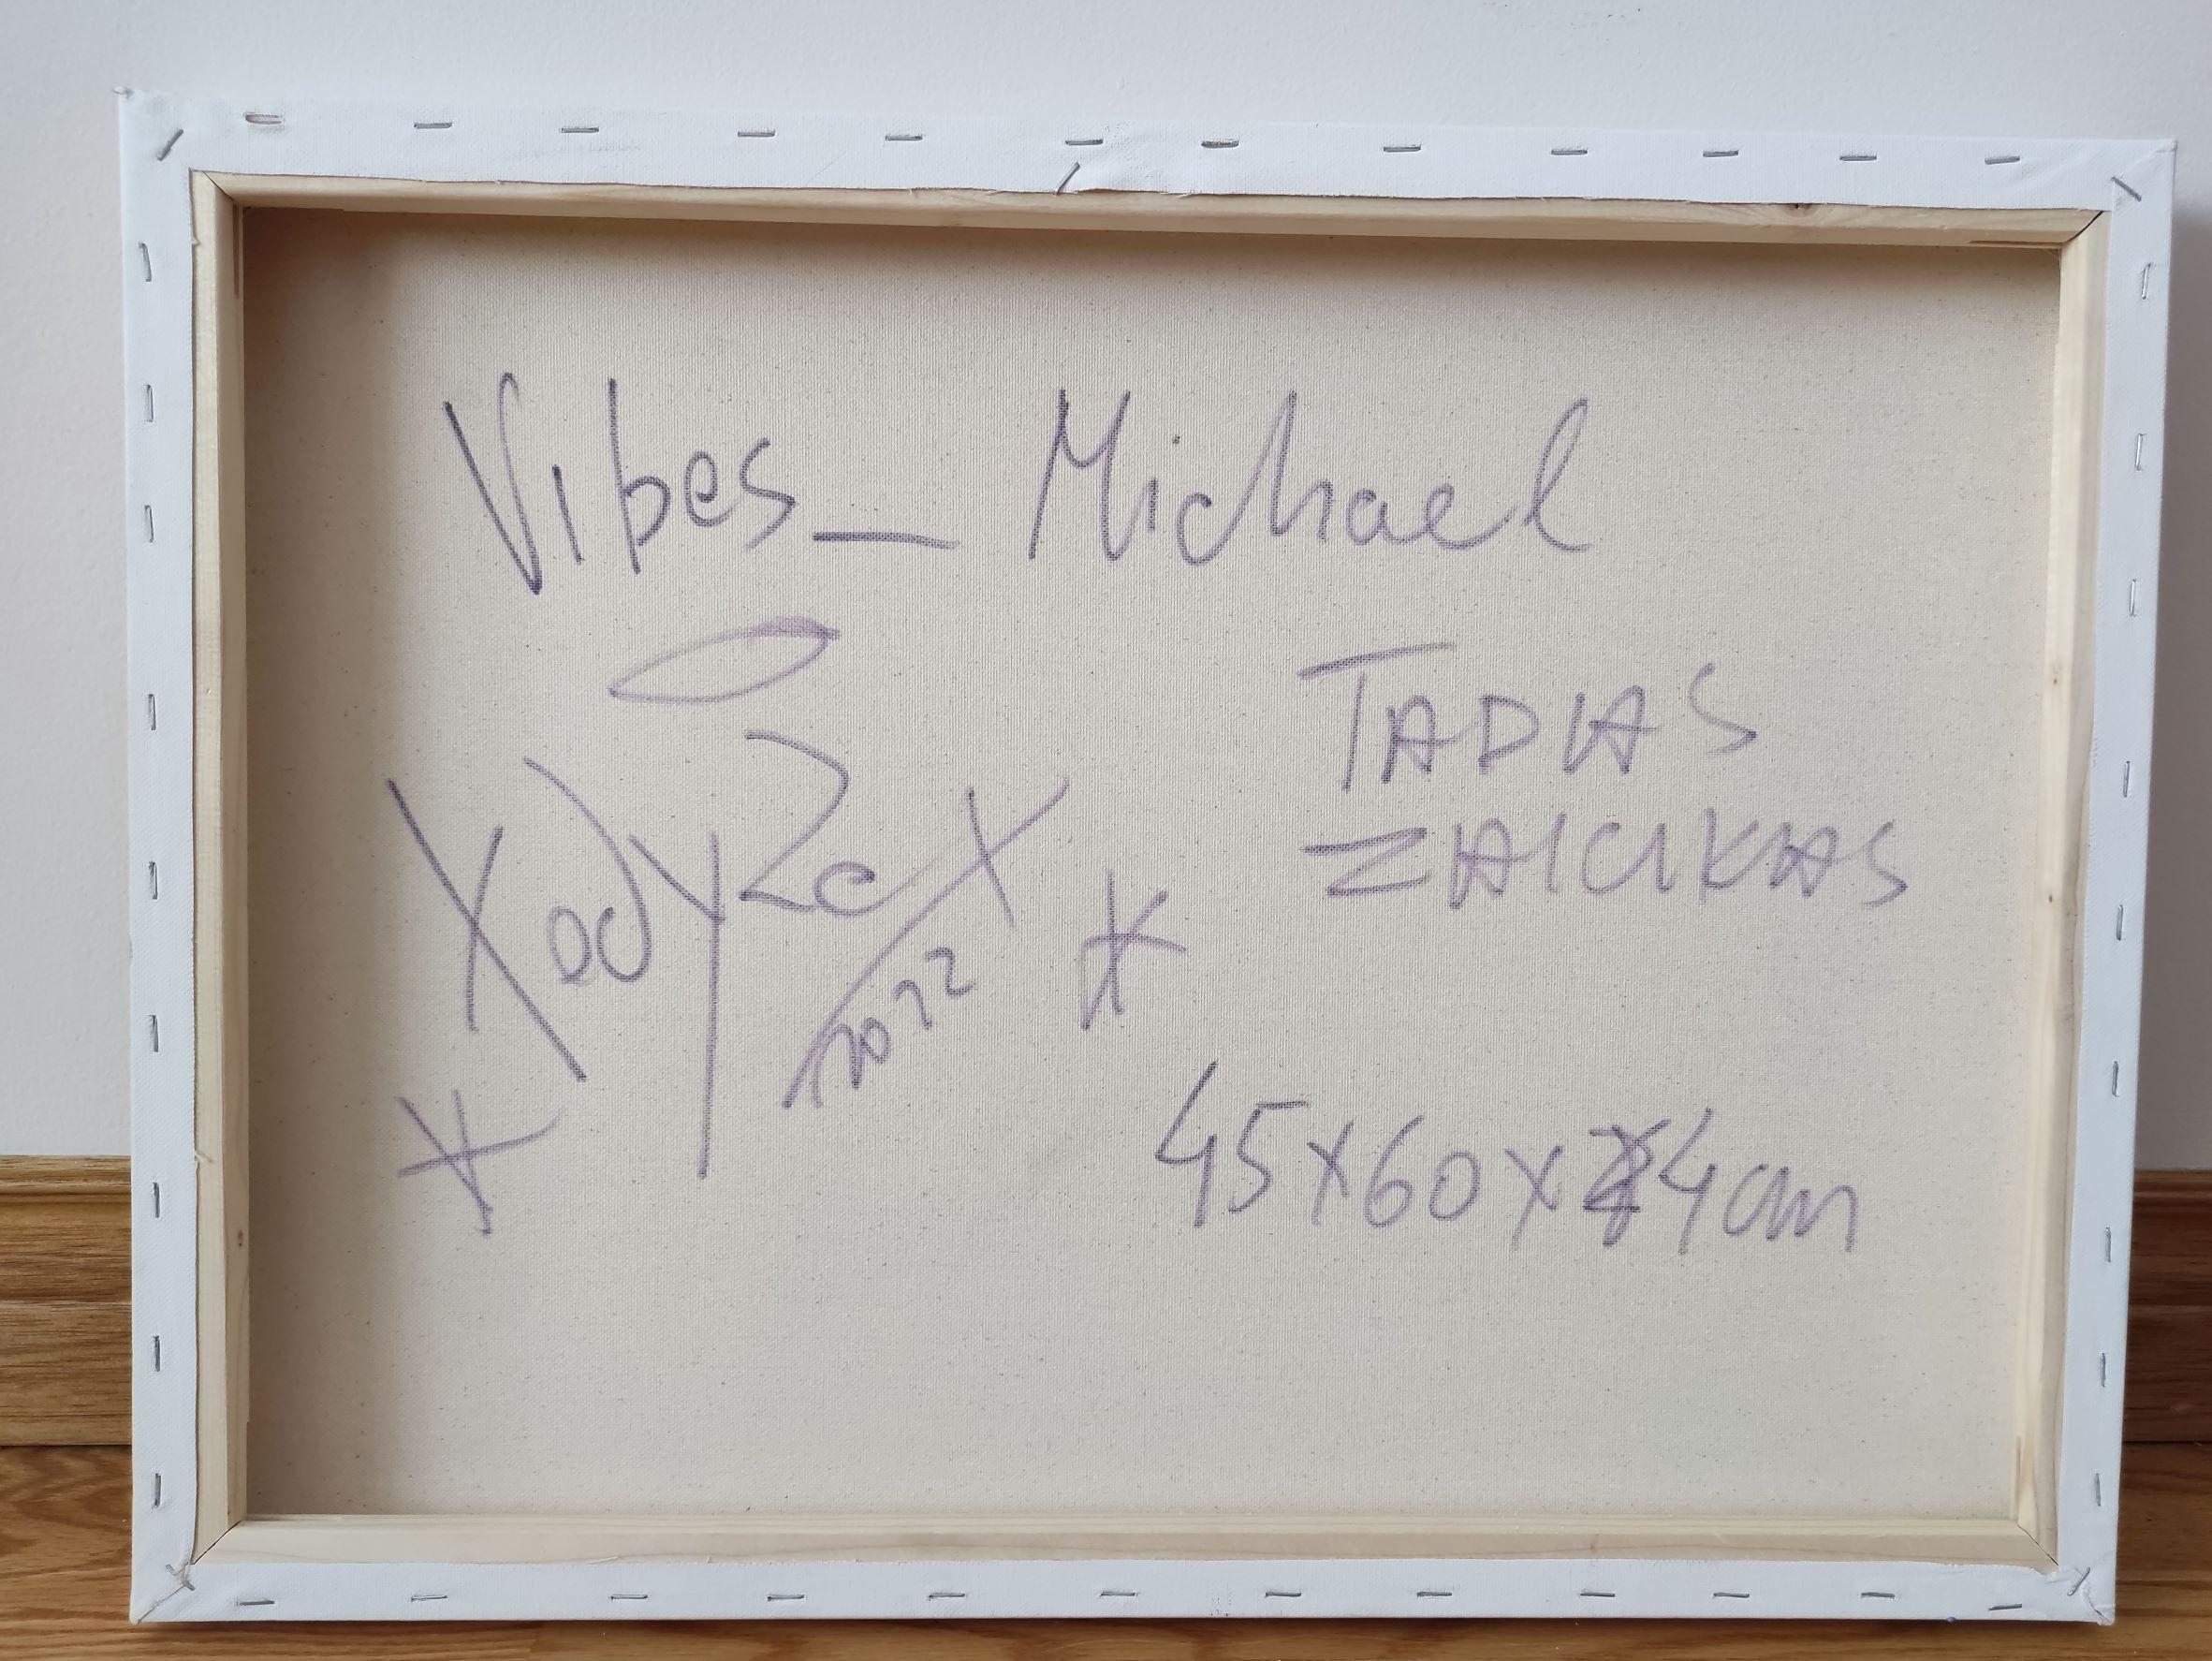 Vibes_ Michael
TADAS
ZAICIKAS
XodyZeX
2022
45x60x4cm